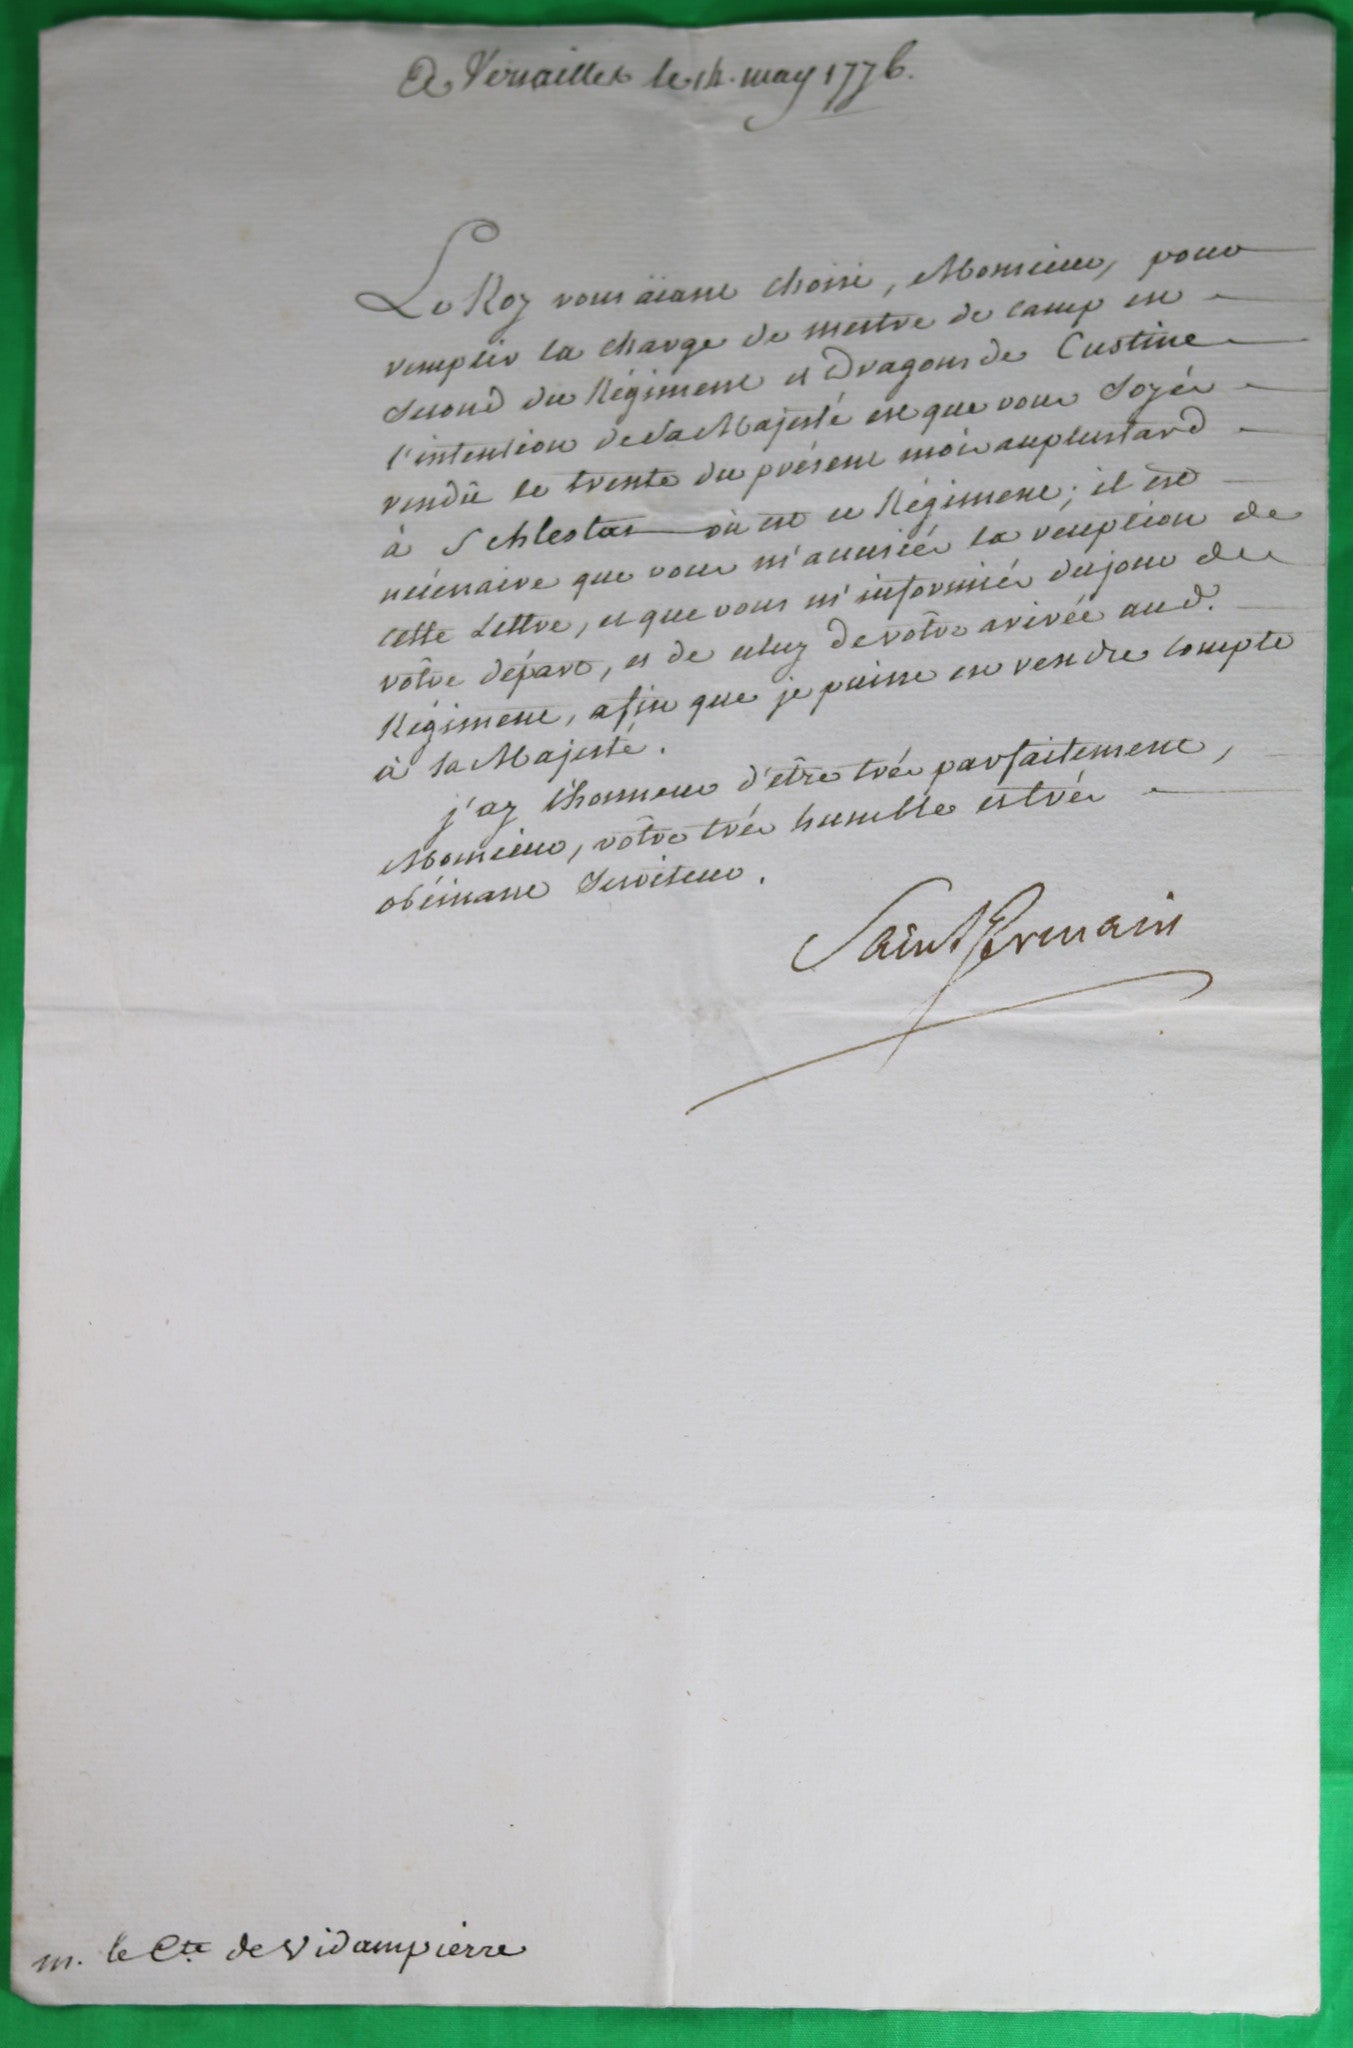 A Versailles le 14. may 1776.
Le Roy vous äiant choisi, Monsieur, pour
remplir la charge de mestre de camp en
second du Régiment de Dragons de Custine
l'intention de Sa Majesté est que vous soyés
rendu le trente du présent mois au plus tard
à Schlestat où est ce Régiment; il est
nécessaire que vous m'accusiés la reception de
cette Lettre, et que vous m'informiés du jour de
vôtre départ, et de celuy de vôtre arivée aud.
Régiment, afin que je puisse en rendre compte
à Sa Majesté.
j'ay l'honneur d'être trés parfaitement,
Monsieur, vôtre trés humble et trés
obéissant Serviteur.
Saint Germain
m. le Cte. de Vidampierre